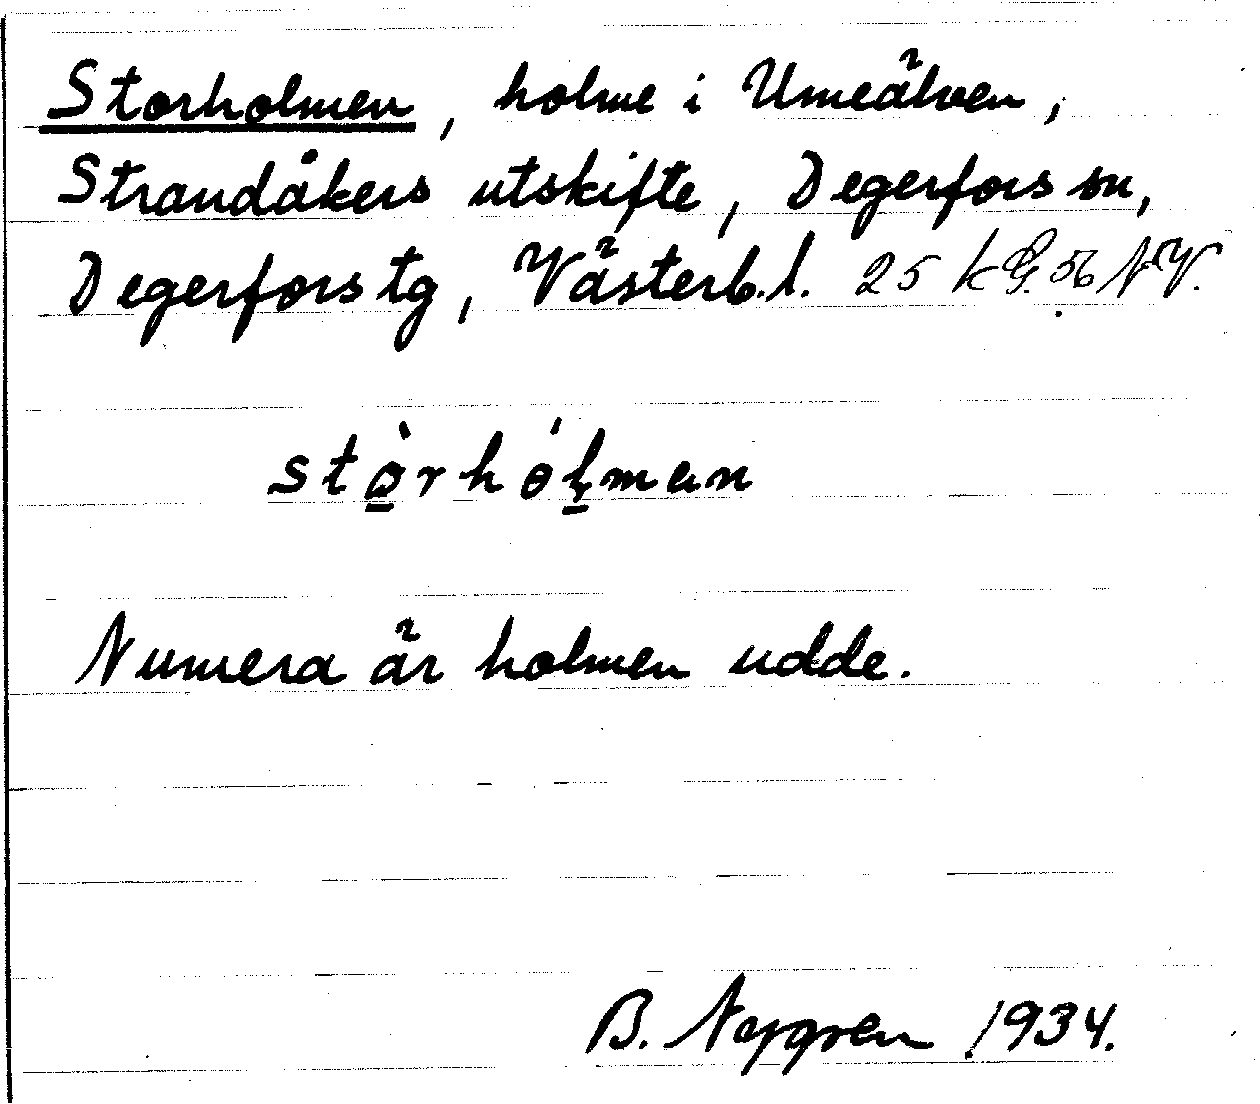 Storholmen, holme i Umeälven,
Strandåkers utskifte, Degerfors sn,
Degerfors tg, Västerb.l. 25 k G. 56 N.V.
stò̱rhól̥̱man
Numera är holmen udde.
B. Nygren 1934.